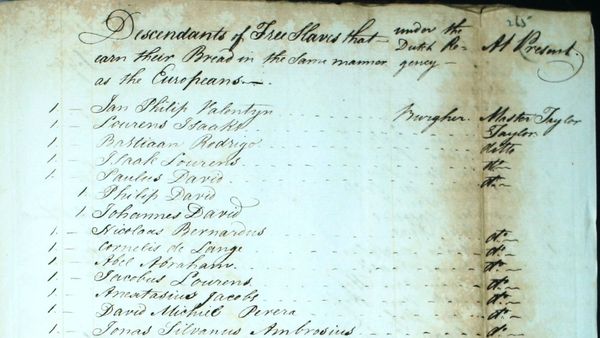 265
Descendants of Free Slaves that under the At Present.
earn their Bread in the Same manner Dutch Re-
as the Europeans.— gency—
1 — Jan Philip Valentyn Burgher. Master Taylor
1 — Lourens Isaaks Taylor
1 — Bastiaan Rodrigo ditto
1 — Isaak Lourens do
1 — Paulus David do —
1 Philip David
1 Johannes David
1 — Nicolaas Bernardus do —
1 — Cornelis de Lange do —
1 — Abel Abraham. do —
1 — Jacobus Lourens do —
1 — Anatasius Jacobs do —
1 — David Michiel Perera do —
1 — Jonas Silvanus Ambrosius do —